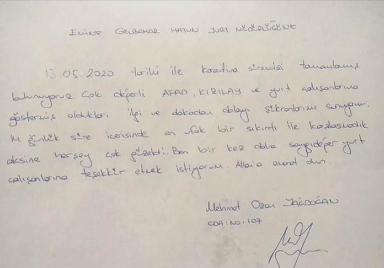 Emine Gülbahar Hatun Yurt Müdürlüğüne
13.05.2020 tarihi ile karantina süremizi tamamlamış
bulunuyoruz çok değerli AFAD, KIZILAY ve yurt çalışanlarına
göstermiş oldukları ilgi ve alakadan dolayı şükranlarımı sunuyorum.
14 günlük süre içerisinde en ufak bir sıkıntı ile karşılaşmadık
aksine herşey çok güzeldi. Ben bir kez daha saygıdeğer yurt
çalışanlarına teşekkür etmek istiyorum. Allah'a emanet olun.
Mehmet Ozan
ODA:NO:107